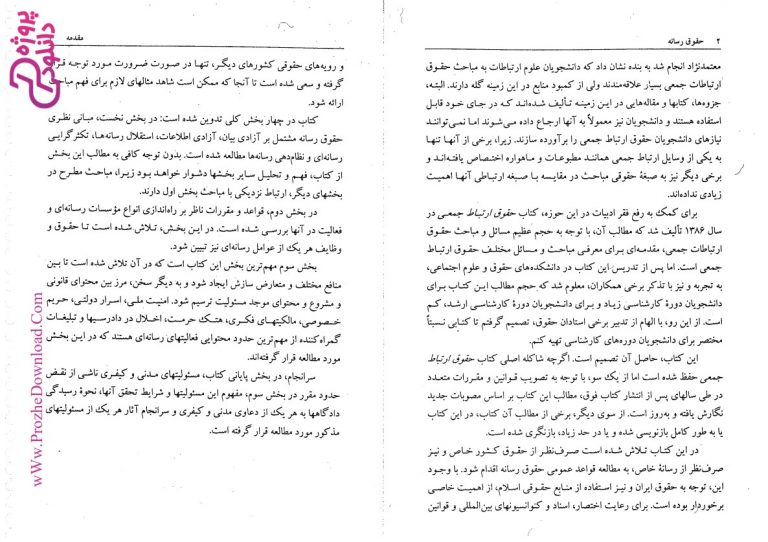 ۲ حقوق رسانه
معتمدنژاد انجام شد به بنده نشان داد که دانشجویان علوم ارتباطات به مباحث حقوق
ارتباطات جمعی بسیار علاقه‌مندند ولی از کمبود منابع در این زمینه گله دارند. البته،
جزوه‌ها، کتابها و مقاله‌هایی در این زمینه تألیف شده‌اند که در جای خود قابل
استفاده هستند و دانشجویان نیز معمولاً به آنها ارجاع داده می‌شوند اما نمی‌توانند
نیازهای دانشجویان حقوق ارتباط جمعی را برآورده سازند. زیرا، برخی از آنها تنها
به یکی از وسایل ارتباط جمعی همانند مطبوعات و ماهواره اختصاص یافته‌اند و
برخی دیگر نیز به صبغهٔ حقوقی مباحث در مقایسه با صبغه ارتباطی آنها اهمیت
زیادی نداده‌اند.
برای کمک به رفع فقر ادبیات در این حوزه، کتاب حقوق ارتباط جمعی در
سال ۱۳۸۶ تألیف شد که مطالب آن، با توجه به حجم عظیم مسائل و مباحث حقوق
ارتباطات جمعی، مقدمه‌ای برای معرفی مباحث و مسائل مختلف حقوق ارتباط
جمعی است. اما پس از تدریس این کتاب در دانشکده‌های حقوق و علوم اجتماعی،
به تجربه و نیز با تذکر برخی همکاران، معلوم شد که حجم مطالب این کتاب برای
دانشجویان دورهٔ کارشناسی زیاد و برای دانشجویان دورهٔ کارشناسی ارشد، کم
است. از این رو، با الهام از تدبیر برخی استادان حقوق، تصمیم گرفتم تا کتابی نسبتاً
مختصر برای دانشجویان دوره‌های کارشناسی تهیه کنم.
این کتاب، حاصل آن تصمیم است. اگرچه شاکله اصلی کتاب حقوق ارتباط
جمعی حفظ شده است اما از یک سو، با توجه به تصویب قوانین و مقررات متعدد
در طی سالهای پس از انتشار کتاب فوق، مطالب این کتاب بر اساس مصوبات جدید
نگارش یافته و به‌روز است. از سوی دیگر، برخی از مطالب آن کتاب، در این کتاب
یا به طور کامل بازنویسی شده و یا در حد زیاد، بازنگری شده است.
در این کتاب تلاش شده است صرف‌نظر از حقوق کشور خاص و نیز
صرف‌نظر از رسانهٔ خاص، به مطالعه قواعد عمومی حقوق رسانه اقدام شود. با وجود
این، توجه به حقوق ایران و نیز استفاده از منابع حقوقی اسلام، از اهمیت خاصی
برخوردار بوده است. برای رعایت اختصار، اسناد و کنوانسیونهای بین‌المللی و قوانین
مقدمه
و رویه‌های حقوقی کشورهای دیگر، تنها در صورت ضرورت مورد توجه قرار
گرفته و سعی شده است تا آنجا که ممکن است شاهد مثالهای لازم برای فهم مباحث
ارائه شود.
کتاب در چهار بخش کلی تدوین شده است: در بخش نخست، مبانی نظری
حقوق رسانه مشتمل بر آزادی بیان، آزادی اطلاعات، استقلال رسانه‌ها، تکثرگرایی
رسانه‌ای و نظام‌دهی رسانه‌ها مطالعه شده است. بدون توجه کافی به مطالب این بخش
از کتاب، فهم و تحلیل سایر بخشها دشوار خواهد بود زیرا، مباحث مطرح در
بخشهای دیگر، ارتباط نزدیکی با مباحث بخش اول دارند.
در بخش دوم، قواعد و مقررات ناظر بر راه‌اندازی انواع مؤسسات رسانه‌ای و
فعالیت در آنها بررسی شده است. در این بخش، تلاش شده است تا حقوق و
وظایف هر یک از عوامل رسانه‌ای نیز تبیین شود.
بخش سوم مهم‌ترین بخش این کتاب است که در آن تلاش شده است تا بین
منافع مختلف و متعارض سازش ایجاد شود و به دیگر سخن، مرز بین محتوای قانونی
و مشروع و محتوای موجد مسئولیت ترسیم شود. امنیت ملی، اسرار دولتی، حریم
خصوصی، مالکیتهای فکری، هتک حرمت، اخلال در دادرسیها و تبلیغات
گمراه‌کننده از مهم‌ترین حدود محتوایی فعالیتهای رسانه‌ای هستند که در این بخش
مورد مطالعه قرار گرفته‌اند.
سرانجام، در بخش پایانی کتاب، مسئولیتهای مدنی و کیفری ناشی از نقض
حدود مقرر در بخش سوم، مفهوم این مسئولیتها و شرایط تحقق آنها، نحوهٔ رسیدگی
دادگاهها به هر یک از دعاوی مدنی و کیفری و سرانجام آثار هر یک از مسئولیتهای
مذکور مورد مطالعه قرار گرفته است.
پروژه
دانلود
wWw.ProzheDownload.Com